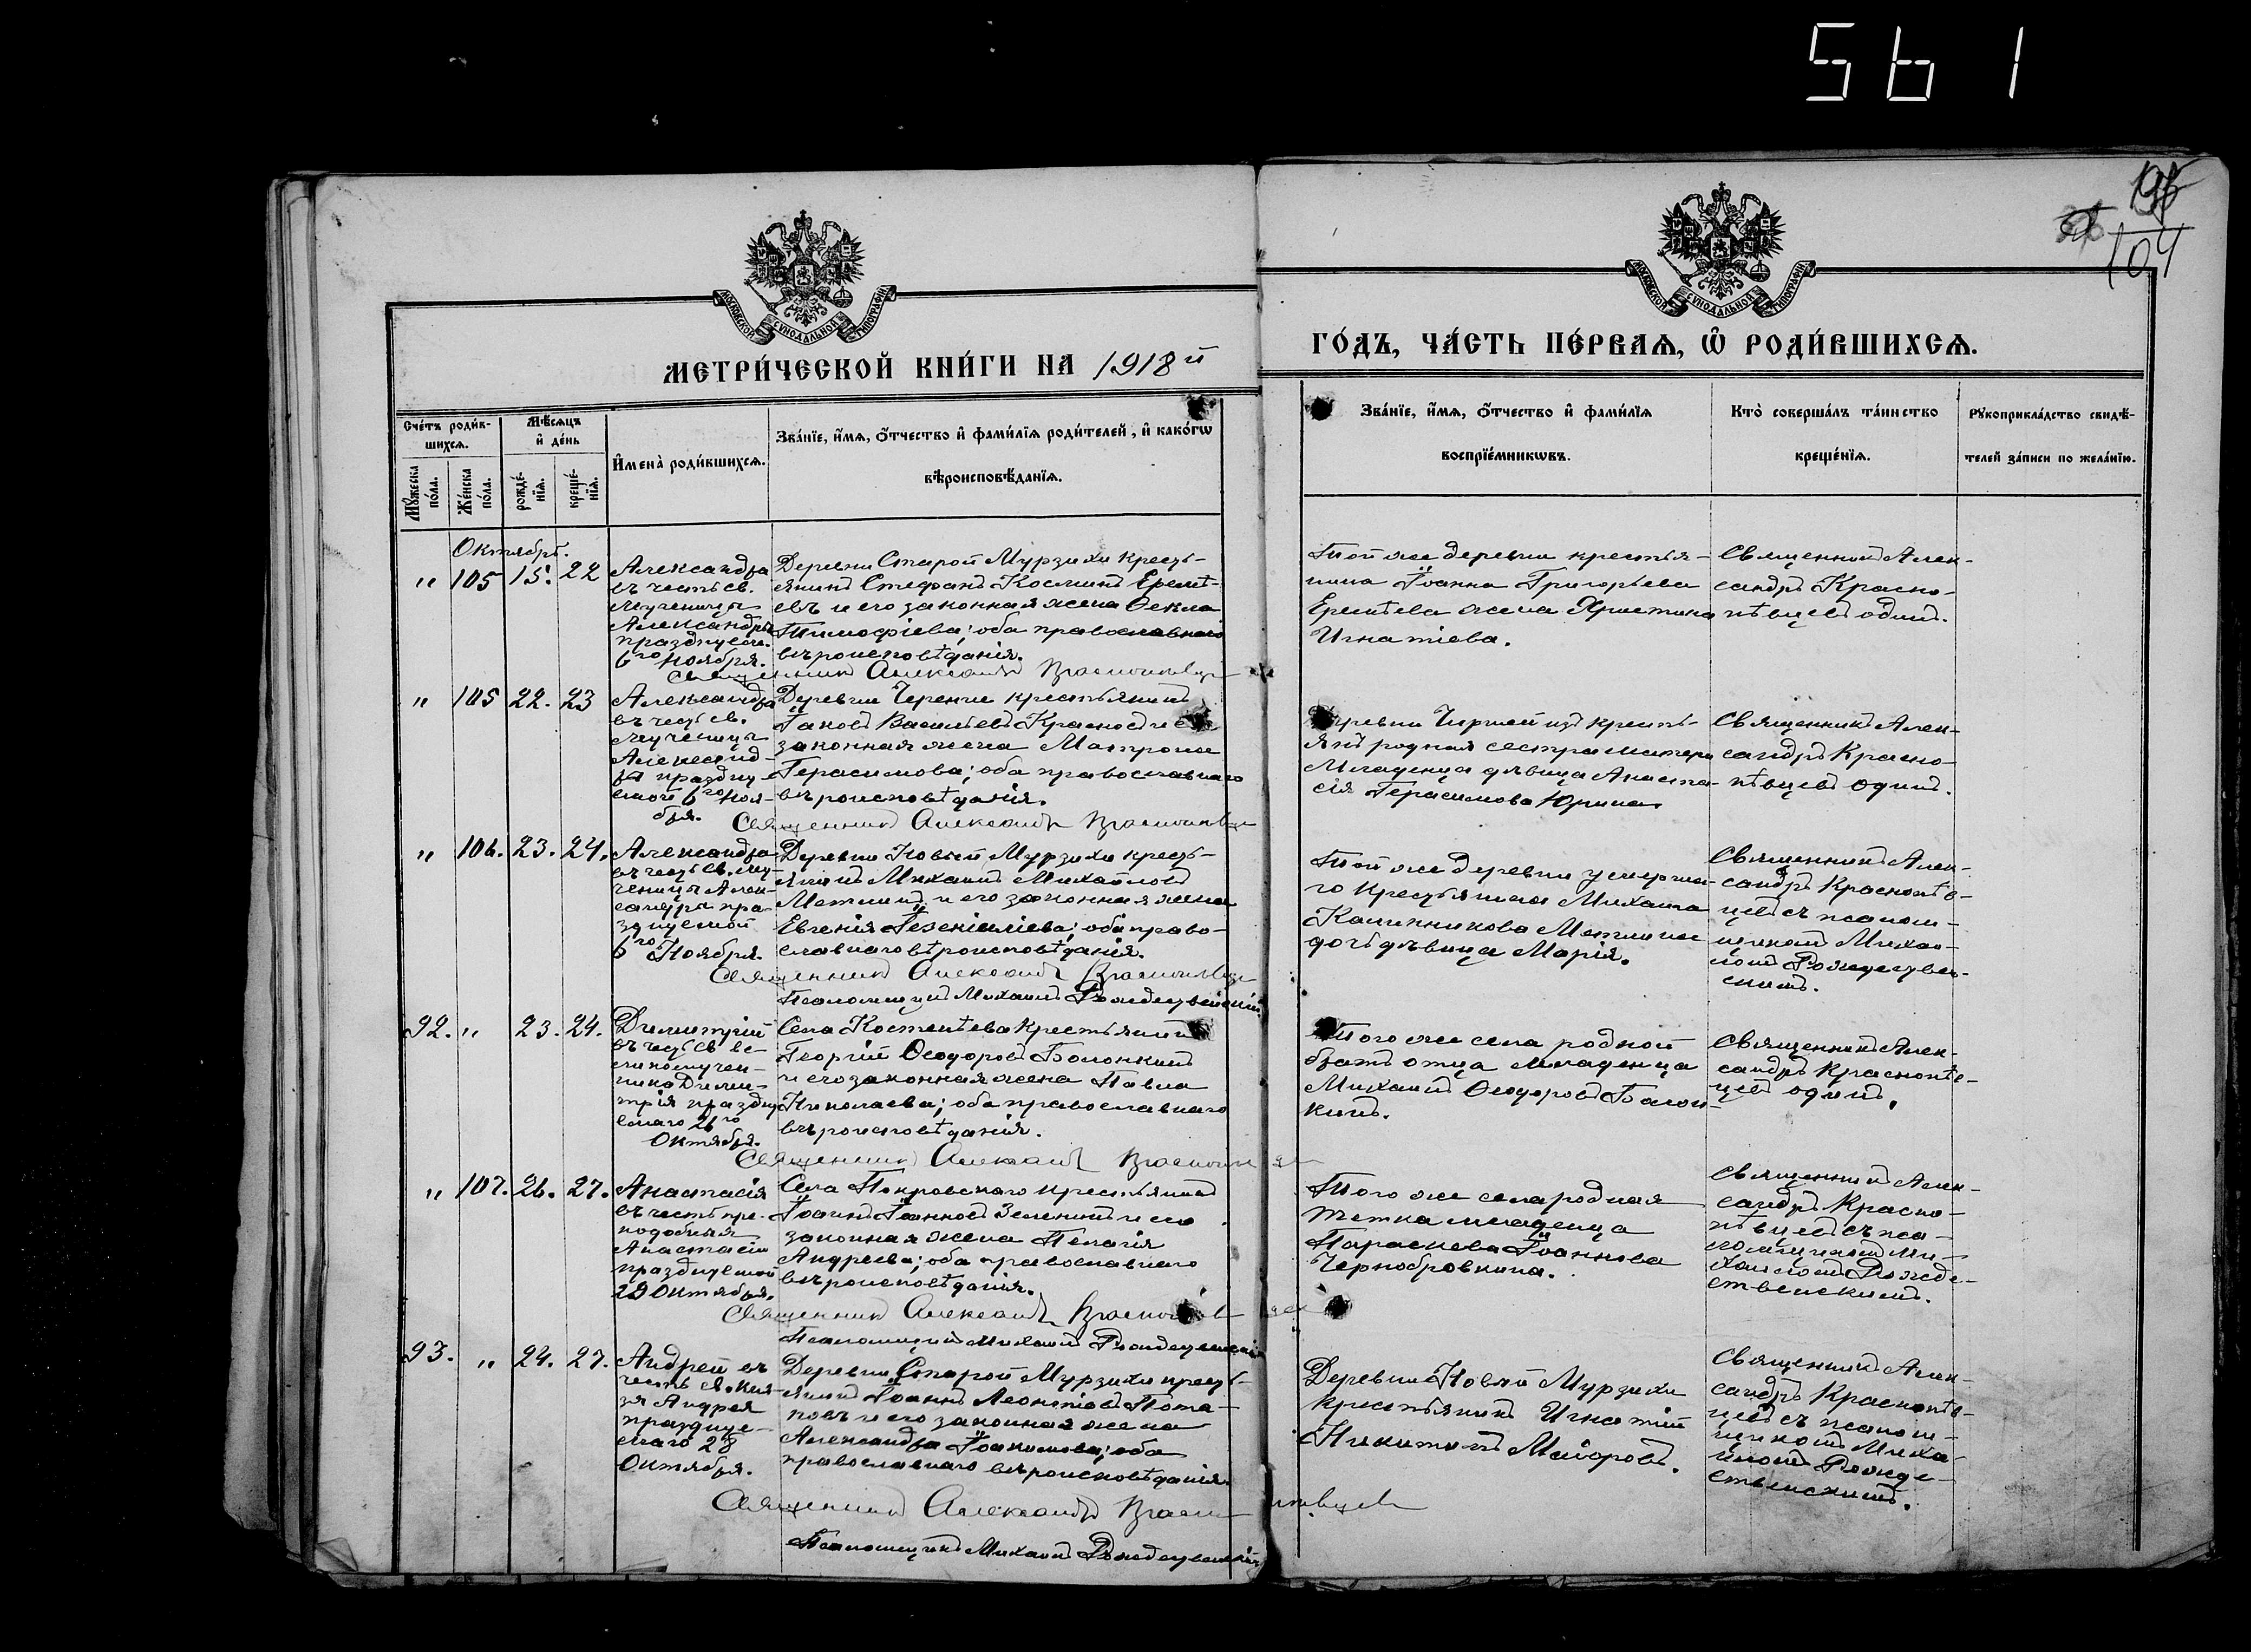 561
195
104
МОСКОВСКОЙ СѴНОДАЛЬНОЙ ТИПОГРАФІИ
МОСКОВСКОЙ СѴНОДАЛЬНОЙ ТИПОГРАФІИ
МЕТРИ́ЧЕСКОЙ КНИ́ГИ НА 1918й
ГО́ДЪ, ЧА́СТЬ ПЕ́РВАѦ, Ѽ РОДИ́ВШИХСѦ.
Сче́тъ роди́в-
шихсѧ.
Мꙋ́жеска по́ла.
Же́нска по́ла.
Мѣ́сѧцъ
и҆ де́нь
рожде́-
нїѧ.
креще́-
нїѧ.
И҆мена̀ роди́вшихсѧ.
Зва́нїе, и҆́мѧ, ѻ҆́тчество и҆ фами́лїѧ роди́телей, и҆ како́гѡ
вѣроисповѣ́данїѧ.
Зва́нїе, и҆́мѧ, ѻ҆́тчество и҆ фами́лїѧ
воспрїе́мникѡвъ.
Кто̀ соверша́лъ та́инство
креще́нїѧ.
Рꙋкоприкла́дство свидѣ́-
телей за́писи по жела́нїю.
Октябрь.
" 105 15. 22
Александра
въ честь св.
мученицы
Александры
празднуем.
6го Ноября.
Деревни Старой Мурзихи кресть-
янинъ Стефанъ Косминъ Еремѣ-
евъ и его законная жена Ѳекла
Тимофіева; оба православнаго
вѣроисповѣданія.
Священникъ Александръ Краснопѣвцевъ
Той же деревни крестья-
нина Іоанна Григорьева
Еремѣева жена Христина
Игнатіева.
Священникъ Алек-
сандръ Красно-
пѣвцевъ одинъ.
" 105 22. 23
Александра
въ честь св.
мученицы
Александ-
ры праздну
емой 6го Ноя-
бря.
Деревни Черепчи крестьянинъ
Іаковъ Васильевъ Красновъ и его
законная жена Матрона
Герасимова; оба православнаго
вѣроисповѣданія.
Священникъ Александръ Краснопѣвцевъ
Деревни изъ кресть-
янъ родная сестра матери
младенца дѣвица Анаста-
сія Герасимова Юрина
Священникъ Алек-
сандръ Красно-
пѣвцевъ одинъ.
" 106. 23. 24.
Александра
въ честь св. му-
ченицы Алек-
сандры пра-
зднуемой
6го Ноября.
Деревни Новой Мурзихи кресть-
янинъ Михаилъ Михайловъ
и его законная жена
Евгенія оба право-
славнаго вѣроисповѣданія.
Священникъ Александръ Краснопѣвцевъ
Псаломщикъ Михаилъ Рождественскій
Той же деревни умерша-
го крестьянина Михаила
Калинникова
дочь дѣвица Марія.
Священникъ Алек-
сандръ Краснопѣв-
цевъ съ псалом-
щикомъ Михаи-
ломъ Рождествен-
скимъ.
92. " 23. 24.
Димитрій
въ честь св ве-
ликомучен-
ника Дими-
трія праздну
емаго 26го
Октября.
Села Костенѣева крестьянинъ
Георгій Ѳеодоровъ Болонкинъ
и его законная жена Павла
Николаева; оба православнаго
вѣроисповѣданія.
Священникъ Александръ Краснопѣвцевъ
Того же села родной
братъ отца младенца
Михаилъ Ѳеодоровъ Балон-
кинъ.
Священникъ Алек-
сандръ Краснопѣв-
цевъ одинъ.
" 107. 26. 27.
Анастасія
въ честь пре-
подобныя
Анастасіи
празднуемой
29 Октября.
Села Покровскаго крестьянинъ
Іоаннъ Іоанновъ Зеленинъ и его
законная жена Пелагія
Андреева; оба православнаго
вѣроисповѣданія.
Священникъ Александръ Краснопѣвцевъ
Псаломщикъ Михаилъ Рождественскій
Того же села родная
тетка младенца
Параскева Іоаннова
Чернобровкина.
Священникъ Алек-
сандръ Красно-
пѣвцевъ съ пса-
ломщикомъ Ми-
хаиломъ Рожде-
ственскимъ.
93. " 24. 27.
Андрей въ
честь св. кня-
зя Андрея
праздну-
емаго 28
Октября.
Деревни Старой Мурзихи кресть-
янинъ Іоаннъ Леонтіевъ Пота-
повъ и его законная жена
Александра Іоакимова; оба
православнаго вѣроисповѣданія.
Священникъ Александръ Краснопѣвцевъ
Псаломщикъ Михаилъ Рождественскій
Деревни Новой Мурзихи
крестьянинъ Игнатій
Никитинъ Майоровъ.
Священникъ Алек-
сандръ Краснопѣв-
цевъ съ псалом-
щикомъ Миха-
иломъ Рожде-
ственскимъ.